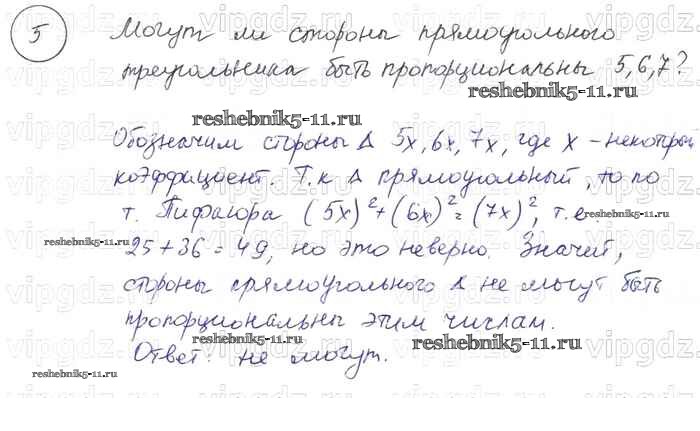 5 Могут ли стороны прямоугольного
треугольника быть пропорциональны 5, 6, 7?
reshebnik5-11.ru
reshebnik5-11.ru
Обозначим стороны Δ 5x, 6x, 7x, где x – некоторый
коэффициент. Т.к Δ прямоугольный, то по
т. Пифагора (5x)²+(6x)²=(7x)², т.е.
reshebnik5-11.ru
reshebnik5-11.ru
25+36=49, но это неверно. Значит,
стороны прямоугольного Δ не могут быть
пропорциональны этим числам.
Ответ: не могут.
reshebnik5-11.ru
reshebnik5-11.ru
vipgdz.ru